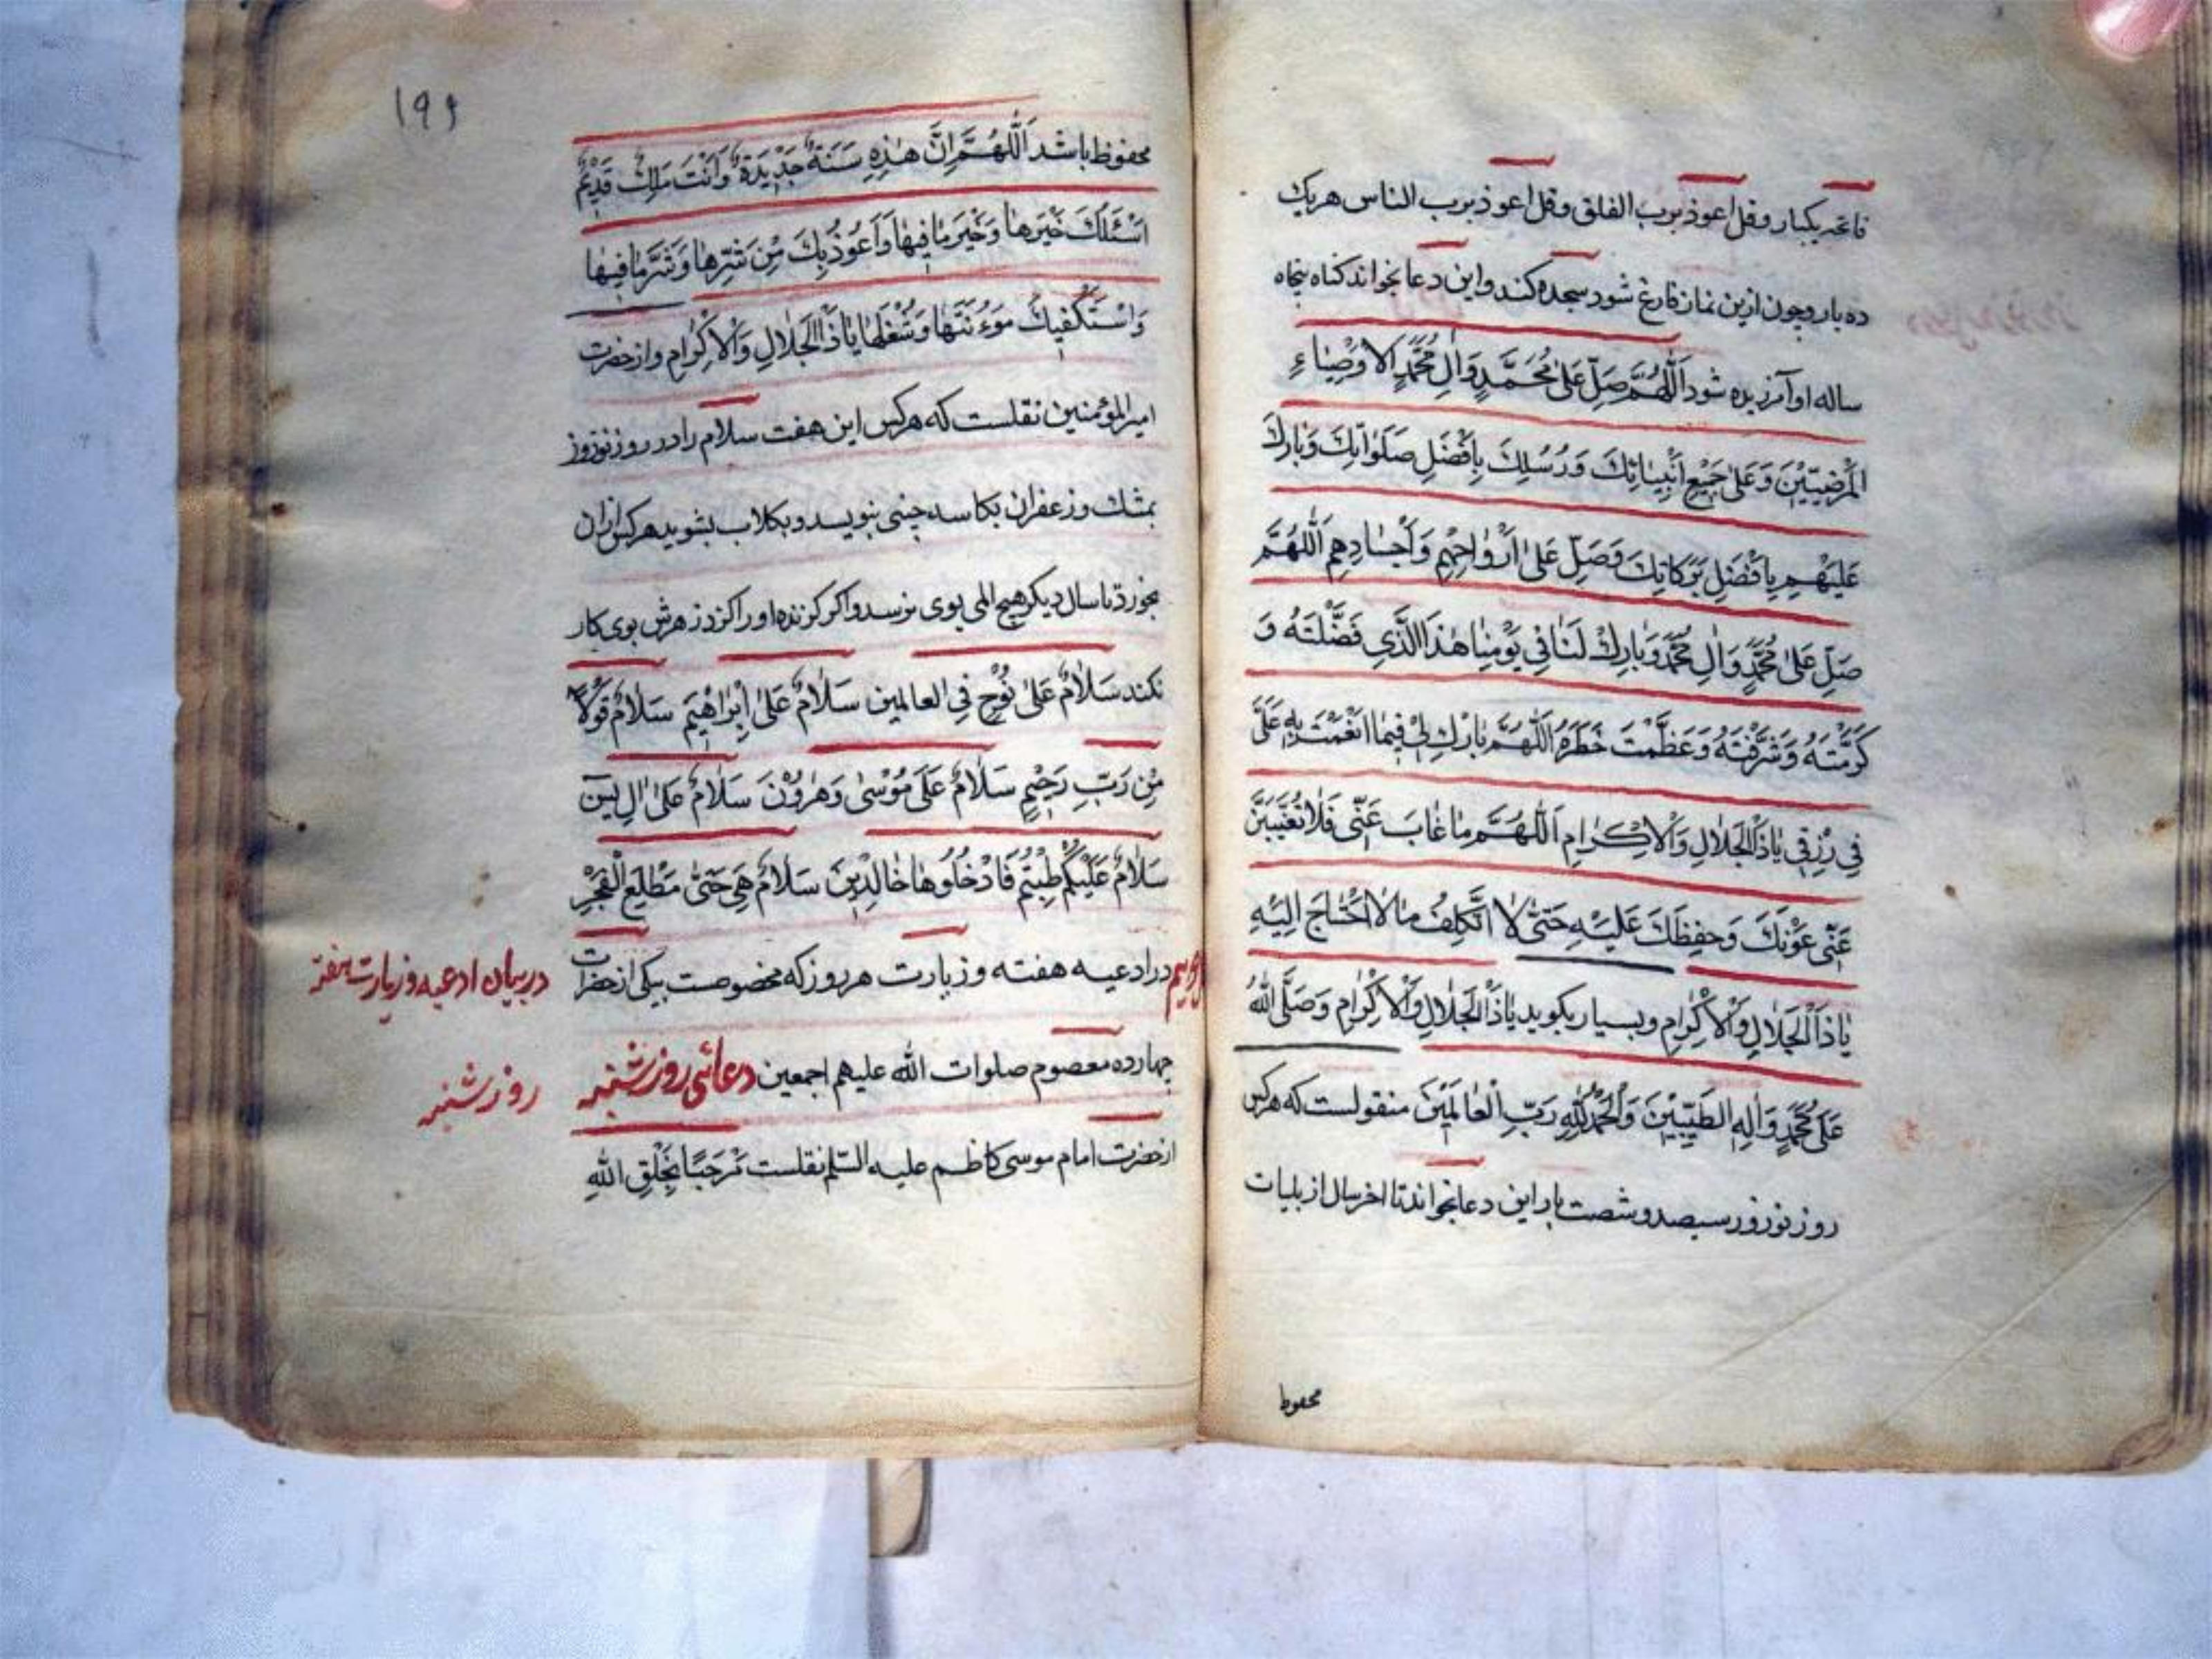 فاتحه یکبار و قل اعوذ برب الفلق و قل اعوذ برب الناس هریک
ده بار و چون ازین نماز فارغ شود سجده کند و این دعا بخواند کناه پنجاه
ساله او آمرزیده شود اَللّٰهُمَّ صَلِّ عَلىٰ مُحَمَّدٍ وَاٰلِ مُحَمَّدٍ الاَوْصِيٰاءِ
الْمَرْضِيّيْنَ وَعَلىٰ جَمِيْعِ اَنْبِيٰائِكَ وَرُسُلِكَ بِاَفْضَلِ صَلَوٰاتِكَ وَبٰارِكْ
عَلَيْهِمْ بِاَفْضَلِ بَرَكَاتِكَ وَصَلِّ عَلىٰ اَرْوٰاحِهِمْ وَاَجْسٰادِهِمْ اَللّٰهُمَّ
صَلِّ عَلىٰ مُحَمَّدٍ وَاٰلِ مُحَمَّدٍ وَبٰارِكْ لَنٰا فِي يَوْمِنٰا هٰذَا الَّذِي فَضَّلْتَهُ وَ
كَرَّمْتَهُ وَشَرَّفْتَهُ وَعَظَّمْتَ خَطَرَهُ اَللّٰهُمَّ بٰارِكْ لِيْ فِيمٰا اَنْعَمْتَ بِهِ عَلَيَّ
فِي رِزْقِي يٰاذَا الْجَلٰالِ وَالْاِكْرٰامِ اَللّٰهُمَّ مٰا غٰابَ عَنّي فَلٰا تُغَيِّبَنَّ
عَنّي عَوْنَكَ وَحِفِظَكَ عَلَيْهِ حَتّىٰ لٰا اَتَكَلِفُ مٰا لٰا اَحْتٰاجَ اِلَيْهِ
يٰاذَا الْجَلٰالِ وَالْاِكْرٰامِ و بسیار بکوید يٰاذَا الْجَلٰالِ وَالْاِكْرٰامِ وَصَلَّى اللّٰهُ
عَلىٰ مُحَمَّدٍ وَاٰلِهِ الطَّيِّبِيْنَ وَالْحَمْدُ لِلّٰهِ رَبِّ الْعٰالَمِيْنَ منقولست که هر کس
روز نوروز سیصد و شصت بار این دعا بخواند تا اخر سال از بلیات
محفوظ
۱۹۶
محفوظ باشد اَللّٰهُمَّ اِنَّ هٰذِهِ سَنَةٌ جَدِيْدَةٌ وَاَنْتَ مَلِكٌ قَدِيْمٌ
اَسْئَلُكَ خَيْرَهٰا وَخَيْرَ مٰا فِيهٰا وَاَعُوْذُ بِكَ مِنْ شَرِّهٰا وَشَرَّ مٰا فِيهٰا
وَاَسْتَكْفِيكَ مَؤُنَتَهٰا وَشُغْلَهٰا يٰاذَا الْجَلٰالِ وَالْاِكْرٰامِ و از حضرت
امیر المؤمنین نقلست که هر کس این هفت سلام را در روز نوروز
بمشک و زعفران بکاسه چینی بنویسد و بکلاب بشوید هر کس ازان
بخورد تا سال دیکر هیچ المی بوی نرسد و اکر کزنده او را کزد زهرش بوی کار
نکند سَلٰامٌ عَلىٰ نُوْحٍ فِي العالمین سَلٰامٌ عَلىٰ اِبْرٰاهْيمَ سَلٰامٌ قَوْلًا
مِنْ رَبٍّ رَحِيْمٍ سَلٰامٌ عَلىٰ مُوْسىٰ وَهٰرُوْنَ سَلٰامٌ عَلىٰ اٰلِ يٰسٓ
سَلٰامٌ عَلَيْكُمْ طِبْتُمْ فَادْخُلُوهٰا خٰالِدِينَ سَلٰامٌ هِيَ حَتّىٰ مَطْلَعِ الْفَجْرِ
در ادعیه هفته و زیارت هر روز که مخصوصست بیکی از حضرات
در بیان ادعیه و زیارت هفته
چهارده معصوم صلوات الله علیهم اجمعین دعائی روز شنبه
روز شنبه
از حضرت امام موسی کاظم علیه السّلم نقلست مَرْحَبًا بِخَلْقِ اللّٰهِ